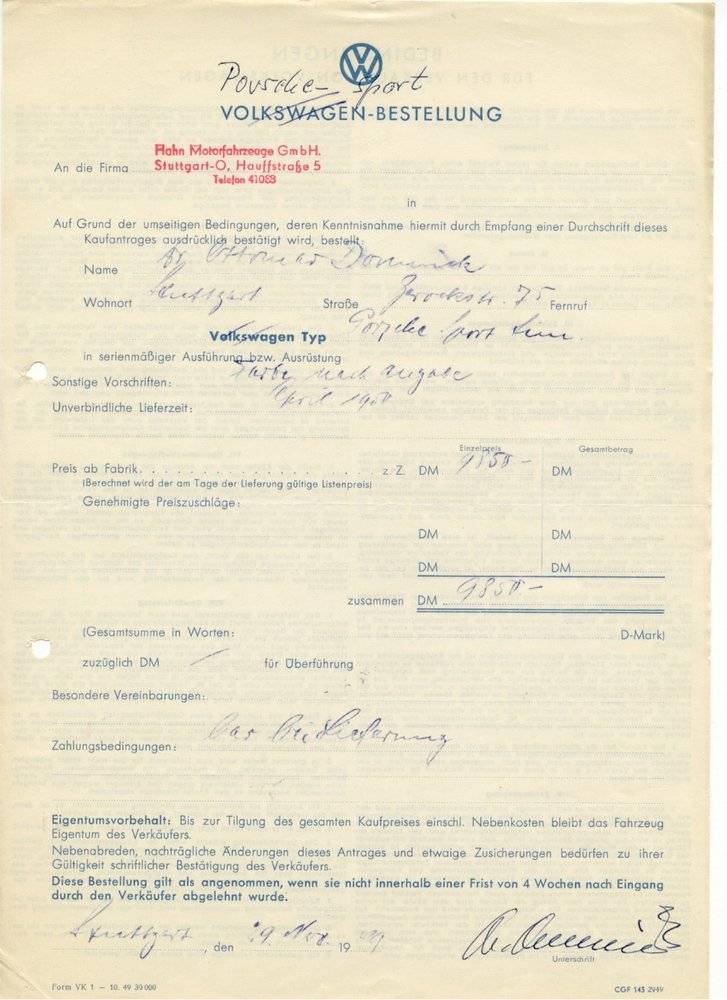 Porsche-Sport
VOLKSWAGEN-BESTELLUNG
Hahn Motorfahrzeuge GmbH.
An die Firma Stuttgart-O, Hauffstraße 5
Telefon 41083
in
Auf Grund der umseitigen Bedingungen, deren Kenntnisnahme hiermit durch Empfang einer Durchschrift dieses
Kaufantrages ausdrücklich bestätigt wird, bestellt:
Name Dr. Ottomar Domnick
Wohnort Stuttgart Straße Gerokstr. 75 Fernruf
Volkswagen Typ Porsche Sport Lim.
in serienmäßiger Ausführung bzw. Ausrüstung
Sonstige Vorschriften: Farbe nach Angabe
Unverbindliche Lieferzeit: April 1950
Einzelpreis Gesamtbetrag
Preis ab Fabrik. z. Z. DM 9850- DM
(Berechnet wird der am Tage der Lieferung gültige Listenpreis)
Genehmigte Preiszuschläge:
DM DM
DM DM
zusammen DM 9850-
(Gesamtsumme in Worten: D-Mark)
zuzüglich DM / für Überführung
Besondere Vereinbarungen:
Zahlungsbedingungen: bar bei Lieferung
Eigentumsvorbehalt: Bis zur Tilgung des gesamten Kaufpreises einschl. Nebenkosten bleibt das Fahrzeug
Eigentum des Verkäufers.
Nebenabreden, nachträgliche Änderungen dieses Antrages und etwaige Zusicherungen bedürfen zu ihrer
Gültigkeit schriftlicher Bestätigung des Verkäufers.
Diese Bestellung gilt als angenommen, wenn sie nicht innerhalb einer Frist von 4 Wochen nach Eingang
durch den Verkäufer abgelehnt wurde.
Stuttgart, den Nov. 19 49 Dr. Domnick
Unterschrift
Form VK 1 – 10. 49 30 000 CGF 145 2949